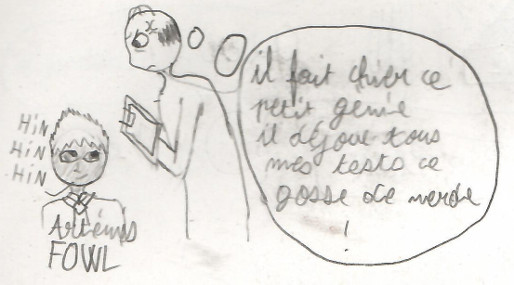 il fait chier ce
petit génie
il déjoue tous
mes tests ce
gosse de merde
!
HIN
HIN
HIN
Artémis
FOWL